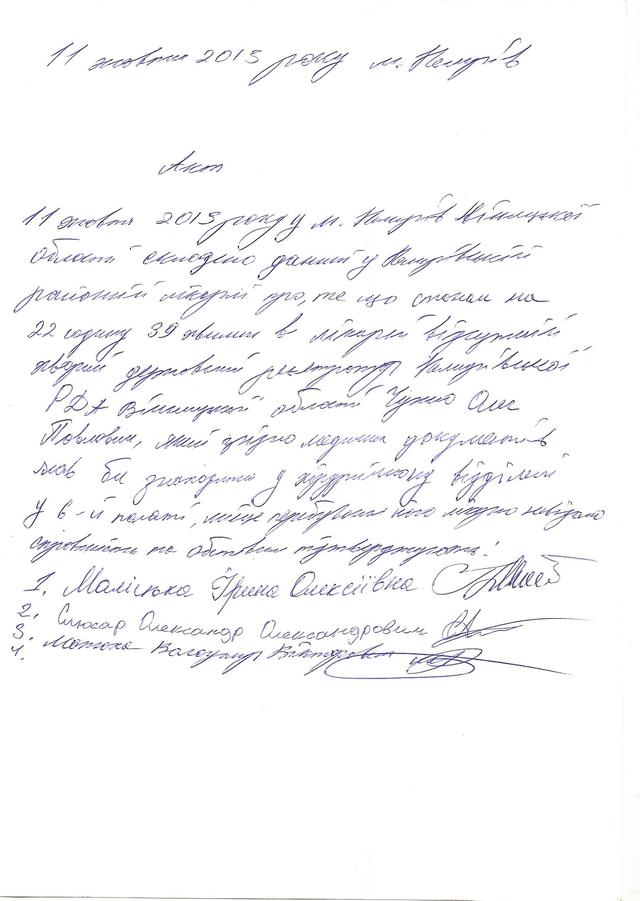 11 жовтня 2013 року м. Немирів
Акт
11 жовтня 2013 року у м. Немирів Вінницької
області складено даний у Немирівській
районній лікарні про, те що станом на
22 годину 39 хвилин в лікарні відсутній
хворий державний реєстратор Немирівської
РДА Вінницької області Олег
Павлович, який згідно медичних документів
мав би знаходитися у хірургічному відділені
у 6-й палаті, місце перебування його медично невідомо
справжність та обставини підтверджують:
1. Ірина Олексіївна
2. Слюсар Олександр Олександрович
3. Володимир Вікторович
4.